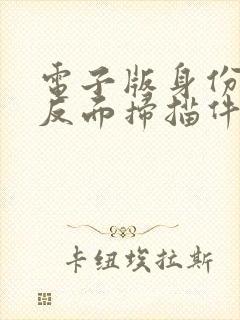 電子版身份
反而掃描件
卡纽埃拉斯